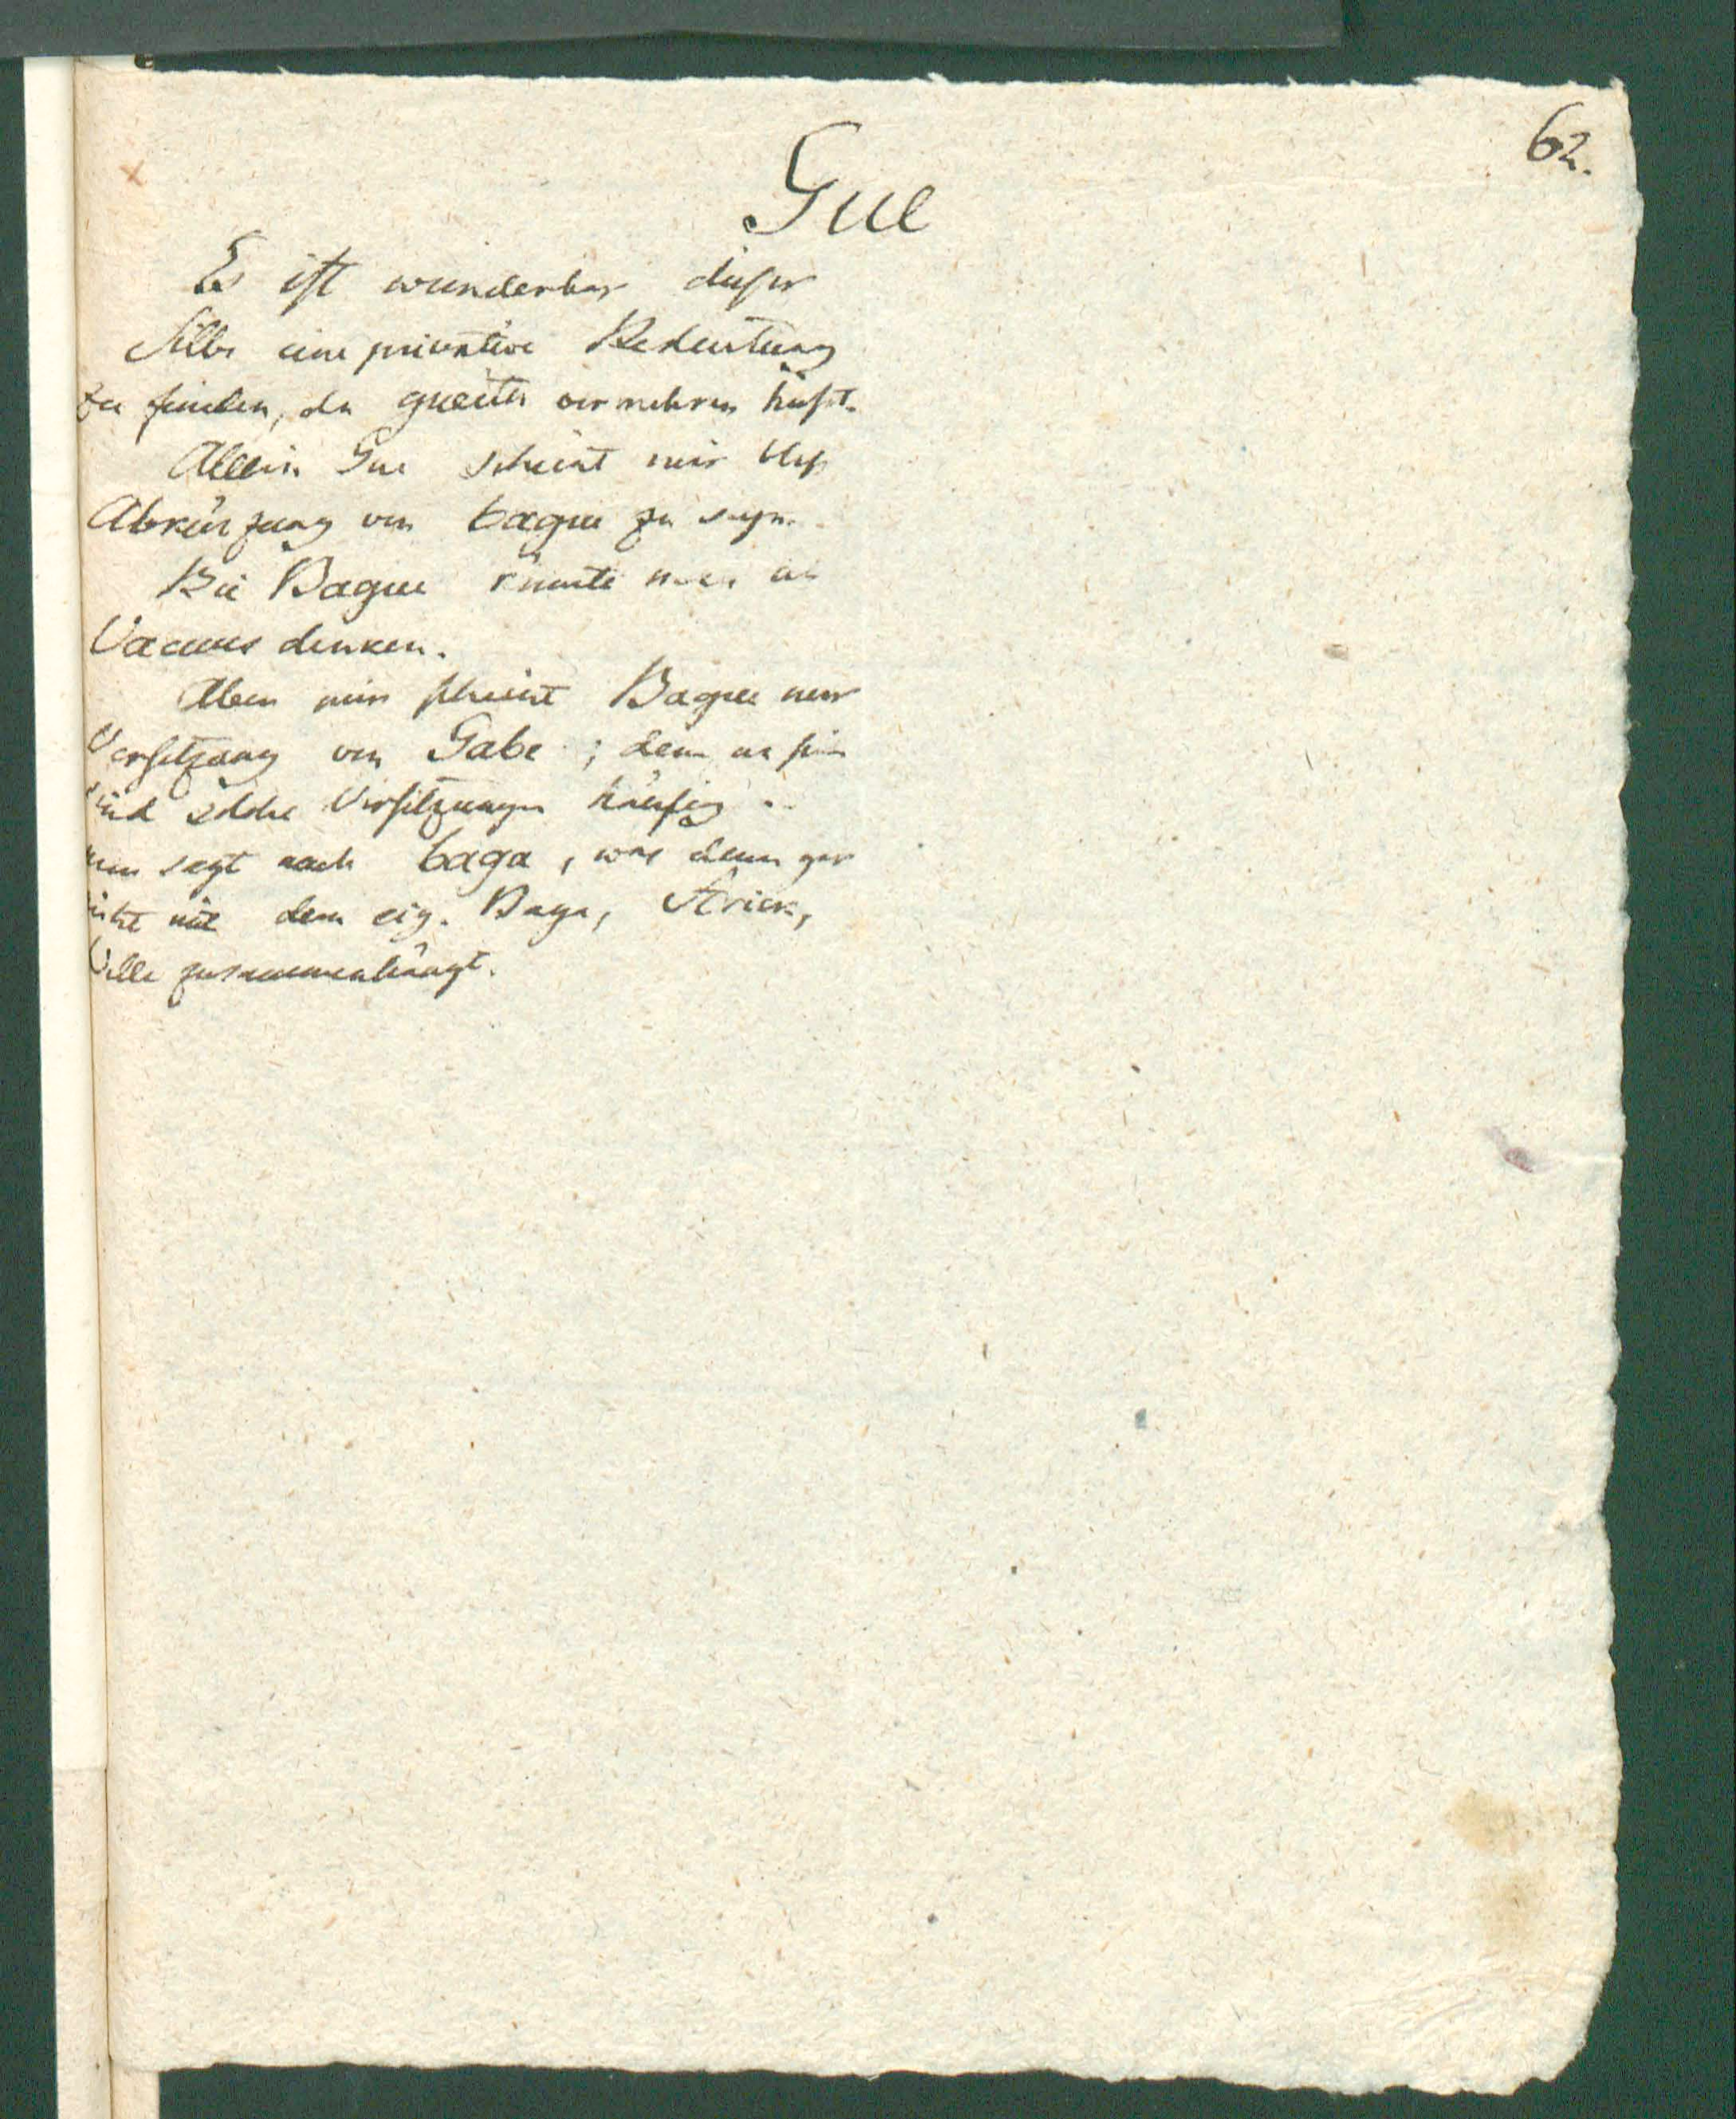 62.
Gue
Es ist wunderbar dieser
Silbe eine privative Bedeutung
zu finden, da gueitu vermehren heißt.
Allein Gue scheint mir bloß
Abkürzung von bague zu seyn.
Bei Bague könnte man an
Vacuus denken.
Aber mir scheint Bague nur
Versetzung von Gabe; denn
sind solche Versetzungen häufig
man sagt auch baga, was denn gar
nicht mit dem eig. Baga, Strick,
zusammenhängt.